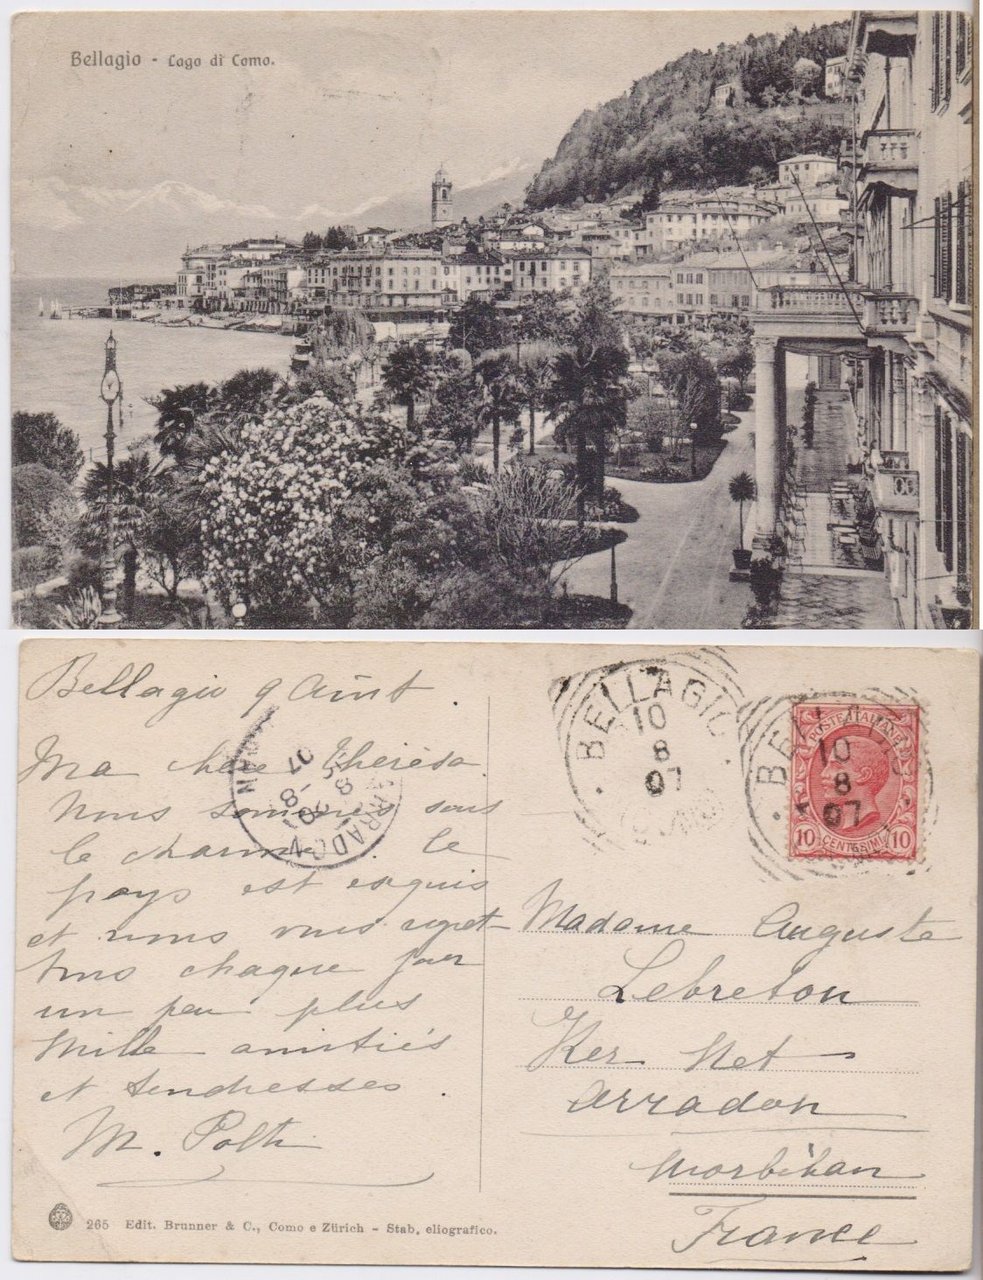 Bellagio - Lago di Como.
Bellagio 9 Août
Ma chère Thérèsa.
Nous sommes sous
le charme. Le
pays est exquis
et nous vous regret-
tons chaque jour
un peu plus
Mille amitiés
et tendresses.
M. Polti
265 Edit. Brunner & C., Como e Zürich - Stab. eliografico.
ARRADON
8-07
BELLAGIO
10
8
07
(COMO)
BELLAGIO
10
8
07
POSTE ITALIANE
10 CENTESIMI 10
Madame Auguste
Lebreton
Ker Net
Arradon
Morbihan
France